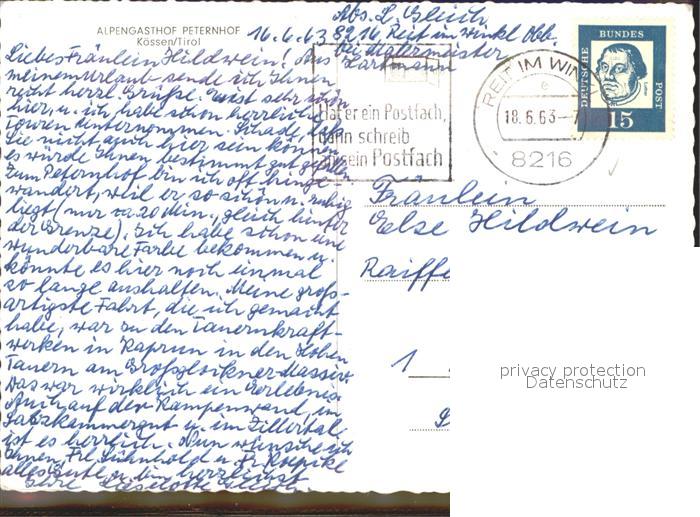 ALPENGASTHOF PETERNHOF
Kössen/Tirol
Abs. L. Gleich,
16.6.63 8216 Reit im Winkl Obb.
bei Malermeister
Hartmann
Liebes Fräulein Hildwein! Aus
meinem Urlaub sende ich Ihnen
recht herzl. Grüße. Es ist sehr schön
hier, u. ich habe schon herrliche
Touren unternommen. Schade, daß
Sie nicht auch hier sein können,
es würde Ihnen bestimmt gut gefallen.
Zum Peternhof bin ich oft hinge-
wandert, weil er so schön u. ruhig
liegt (nur ca. 20 Min., gleich hinter
der Grenze). Ich habe schon eine
wunderbare Farbe bekommen u.
könnte es hier noch einmal
so lange aushalten. Meine groß-
artigste Fahrt, die ich gemacht
habe, war zu den Tauernkraft-
werken in Kaprun in den Hohen
Tauern am Großglockner-Massiv.
Das war wirklich ein Erlebnis.
Auch auf der Kampenwand, im
Salzkammergut u. im Zillertal
ist es herrlich. Nun wünsche ich
Ihnen, Frl. u. Fr.
alles Gute u. bin herzlichst
Ihre Liselotte Gleich.
Hat er ein Postfach,
dann schreib
an sein Postfach
REIT IM WINKL
e
18.6.63-7
8216
DEUTSCHE BUNDESPOST
Luther
15
Fräulein
Else Hildwein
Raiffe
1
privacy protection
Datenschutz